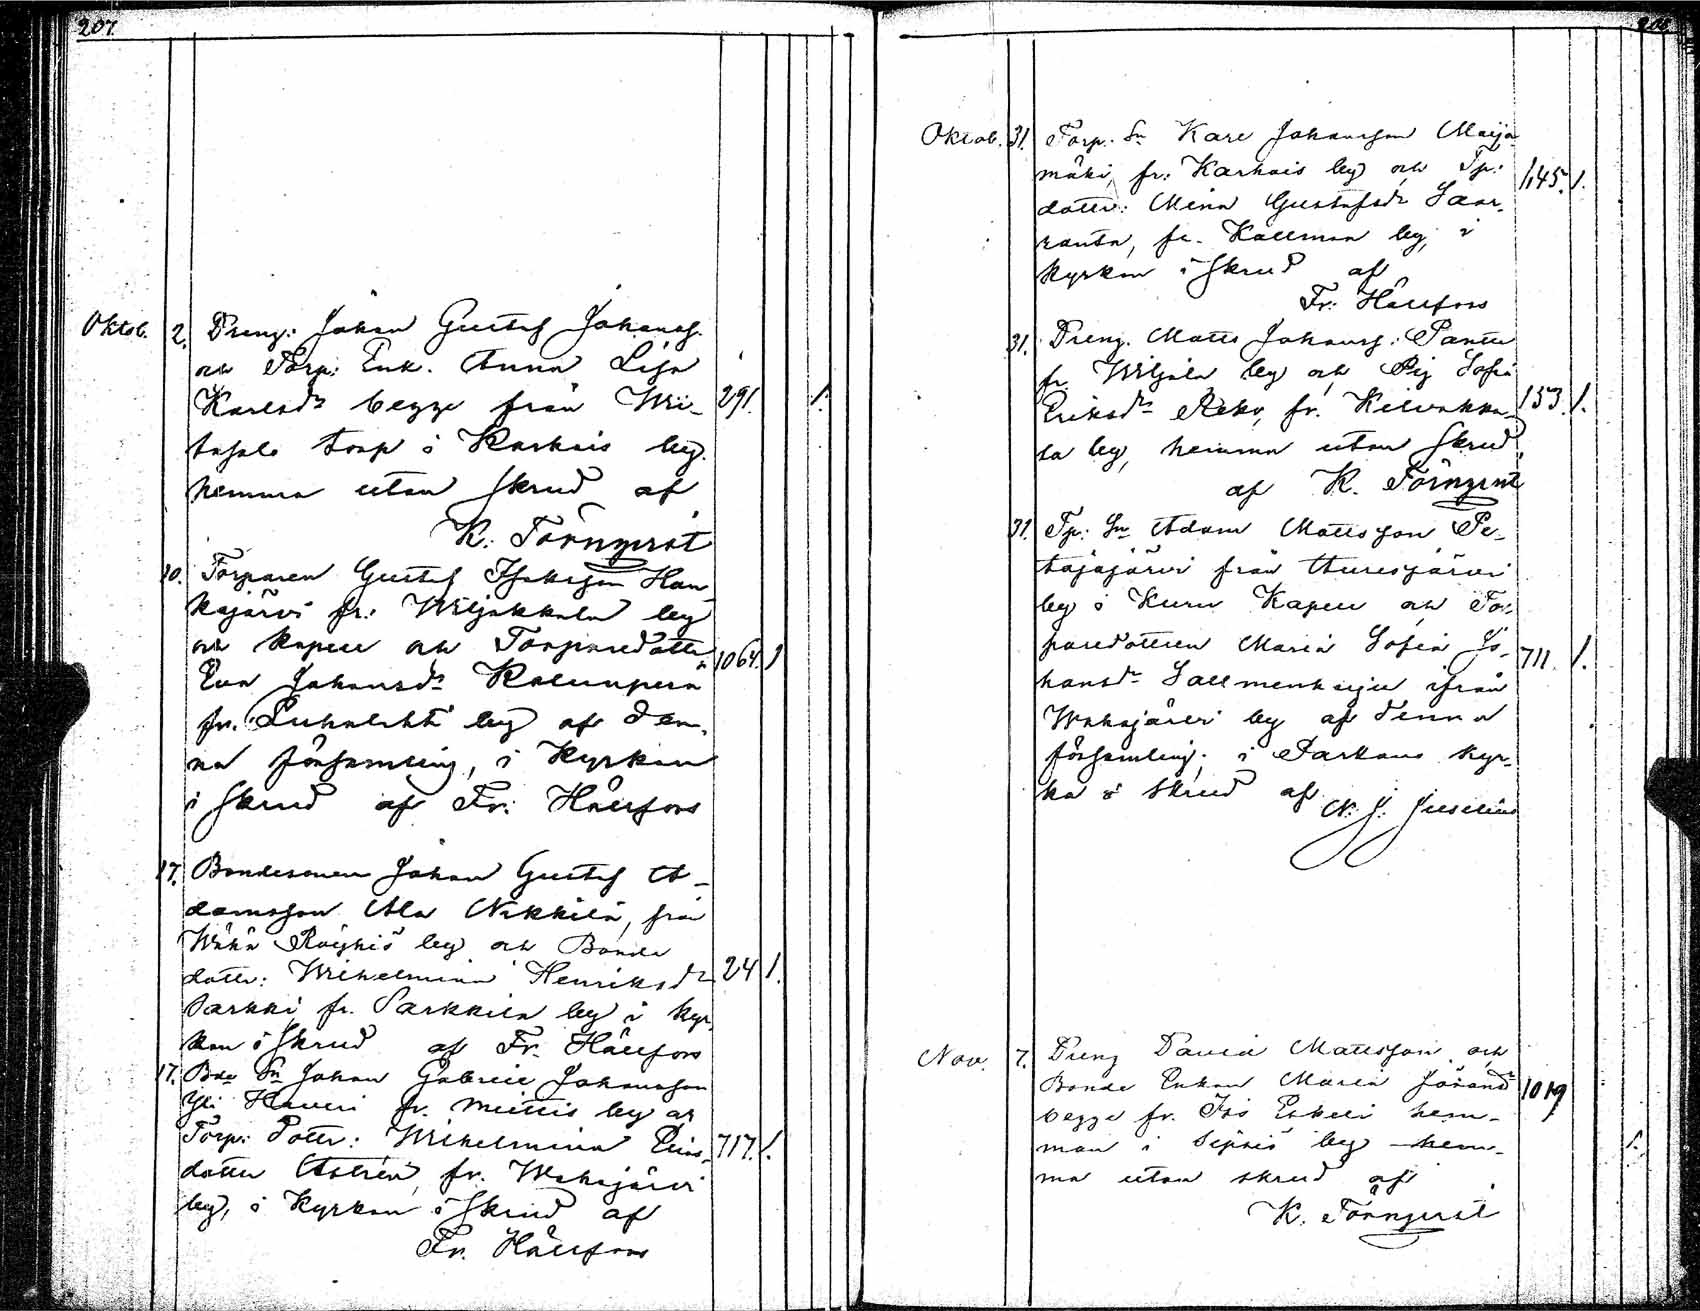 207.
Oktob. 2. Dreng: Johan Gustaf Johansf.
och Torp: Enk. Anna Lisa
Karlsdr begge från Wii- 291. 1.
tasalo torp i Karhois by.
hemma utan skrud af
K. Törnqvist
10. Torparen Gustaf Isaksson Han-
kajärvi fr: Wiljakkala by
och kapell och Torparedotter
Eva Johansdr Kalunperä 1064. 1
fr. Luhalahti by af den-
na församling, i kyrkan
i skrud af Fr: Hällfors
17. Bondesonen Johan Gustaf A-
damsson Ala Nikkilä, från
Wähä Röyhiö by och Bonde
dotter: Wilhelmina Henriksdr 24 1.
Sarkki fr. Sarkkila by i kyr-
kan i skrud af Fr. Hällfors
17. Bde Sn Johan Gabriel Johansson
Yli Haveri fr. Miettis by och
Torp: Dotter: Wilhelmina Elias- 717. 1.
dotter Aström, fr. Wahojärvi
by, i kyrkan i skrud af
Fr. Hällfors
Oktob. 31. Torp. Sn Karl Johansson Maija-
mäki, fr: Karhois by och Tp: 1,145. 1.
dotter: Mina Gustafsdr Saar-
ranta, fr. Kallman by, i
kyrkan i skrud af
Fr: Hällfors
31. Dreng. Matts Johansf: Pantti
fr. Wiljala by och Pig Sofia
Eriksdr Rekv, fr. Kilvakka- 153. 1.
la by, hemma utan skrud,
af K. Törnqvist
31. Tp: Sn Adam Mattsson Pe-
täjäjärvi från Aurejärvi
by i Kuru Kapell och Tor-
paredottren Maria Sofia Jo- 711. 1.
hansdr Sallmenkylä ifrån
Wahojärvi by af denna
församling; i Parkano kyr-
ka i skrud af N. J. Juselius
Nov. 7. Dreng David Mattsson och
Bonde Enkan Maria Johansdr 1019
begge fr. Iso Eskeli hem-
man i Sipsiö by hem- 1.
ma utan skrud af
K. Törnqvist